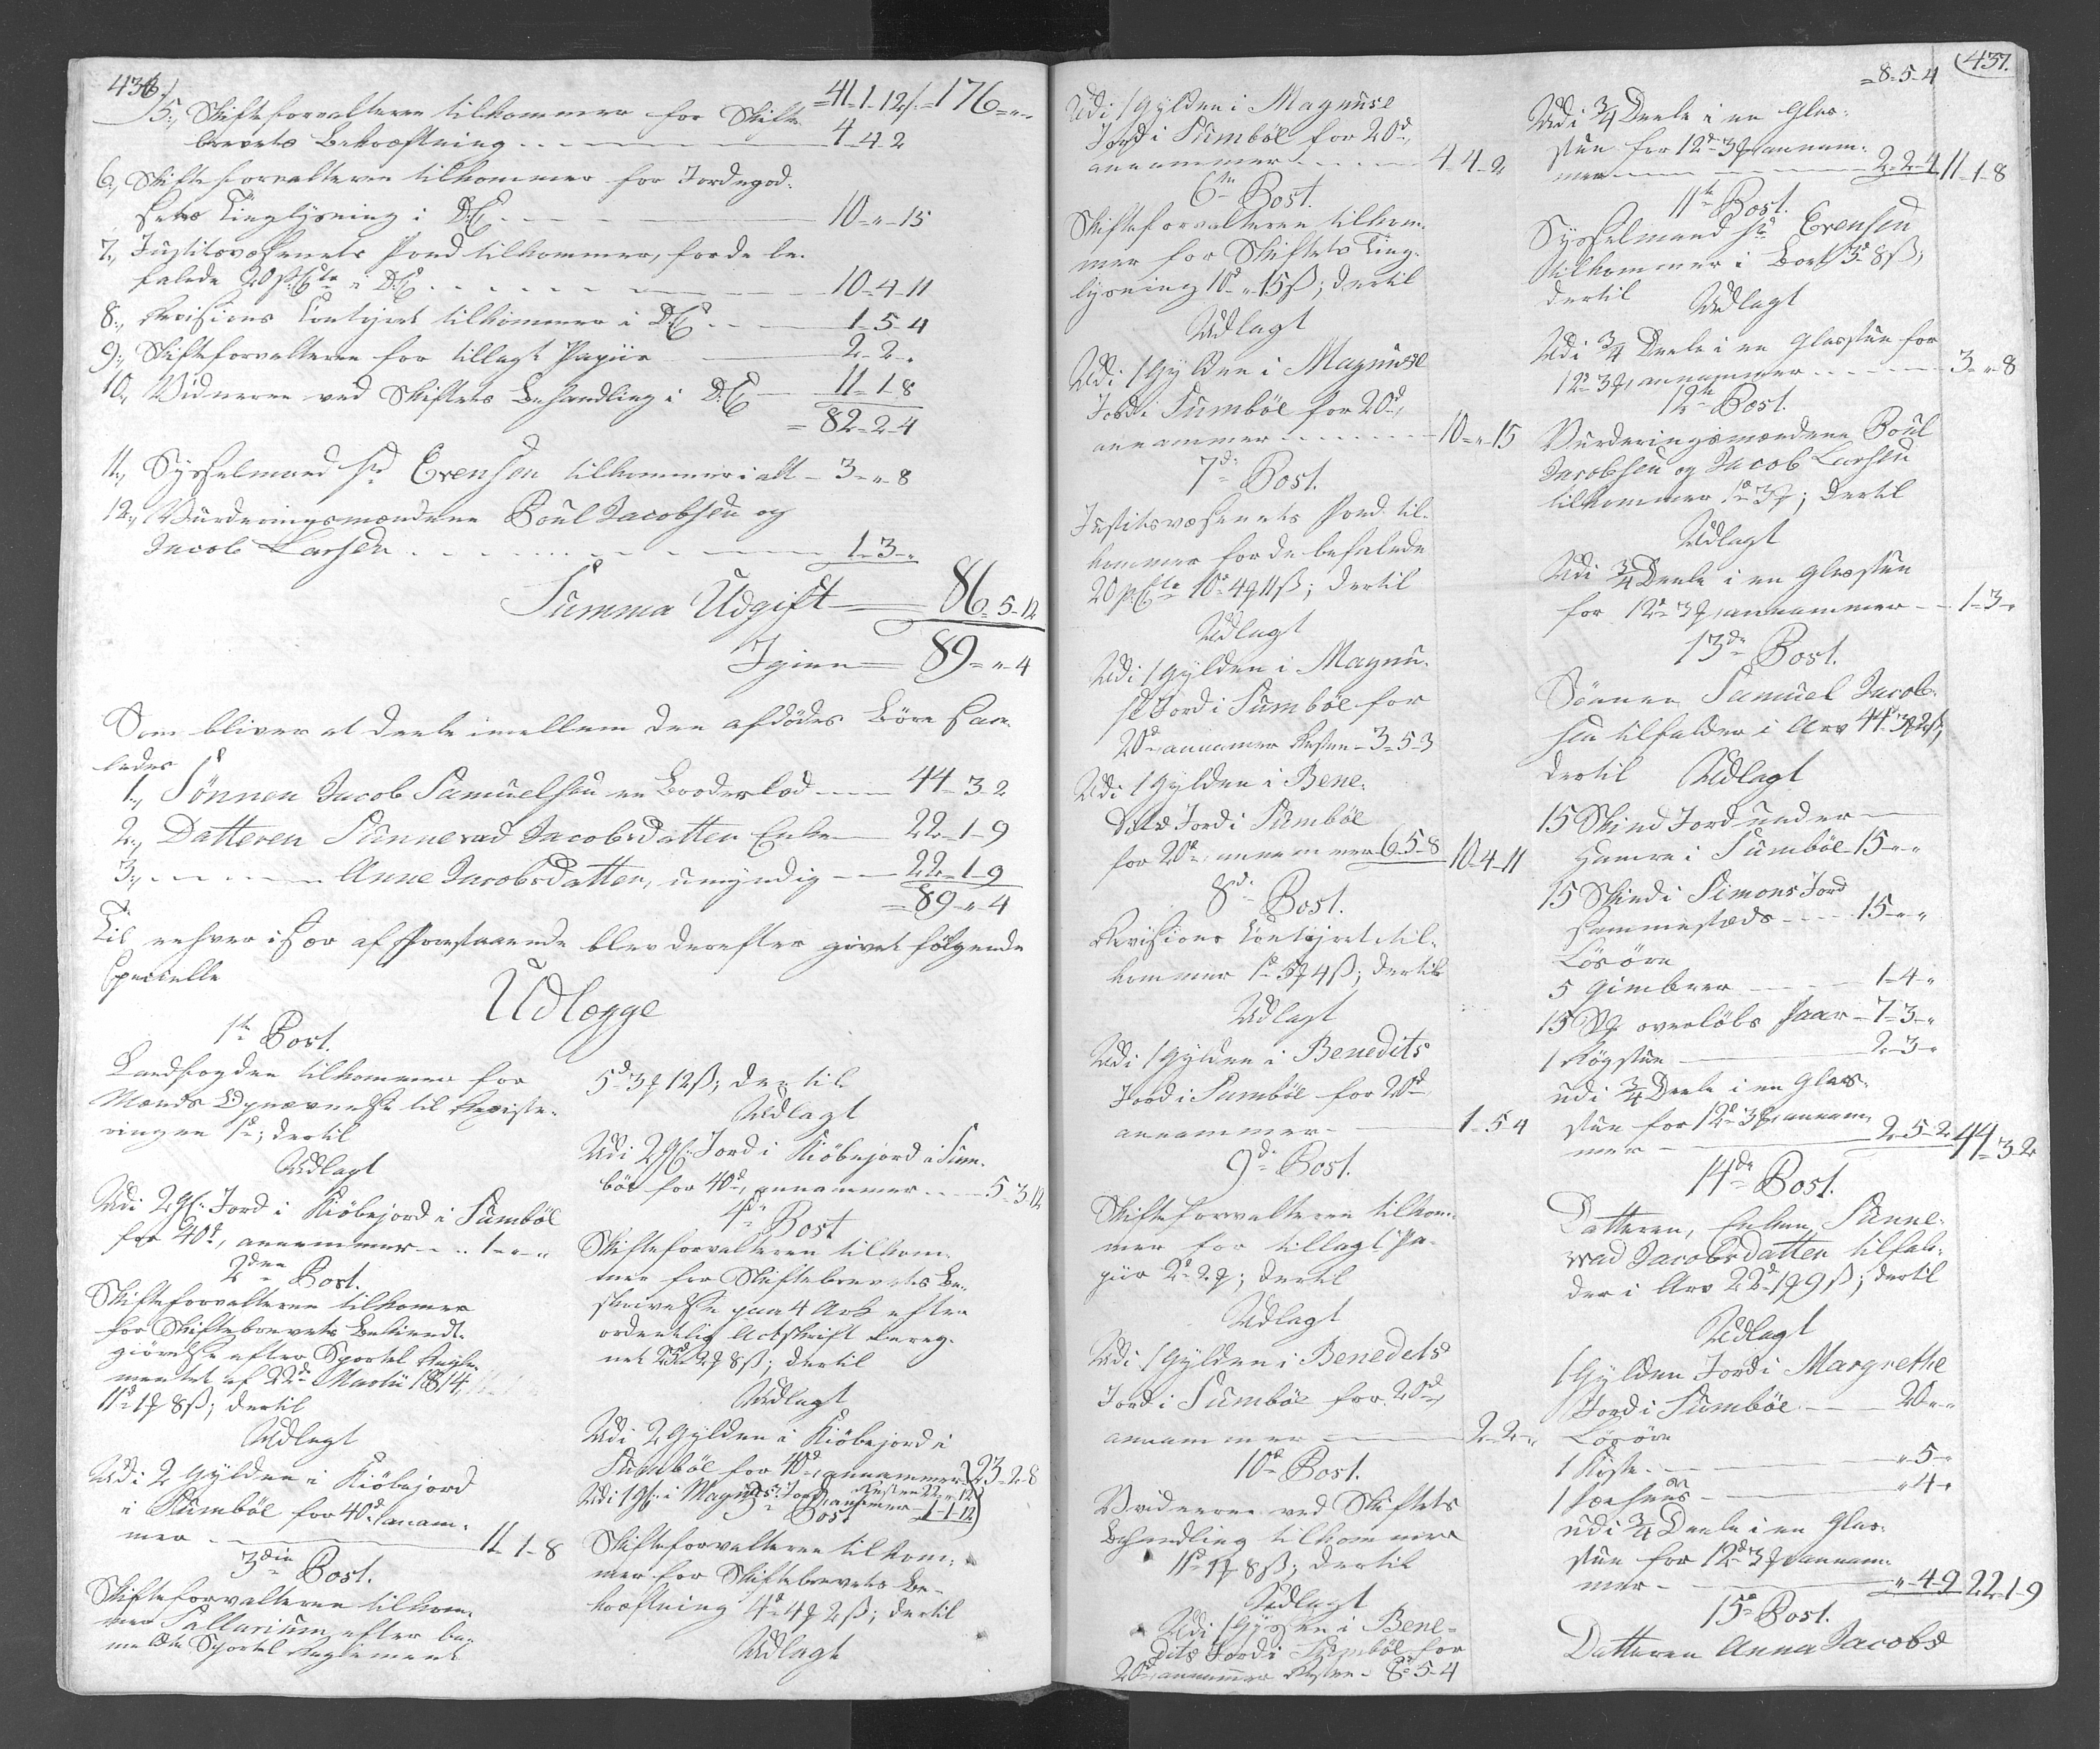 436.
=41-1-12ß. =176-"-"
5., Skifteforvalteren tilkommer for Skifte-
brevets Bekræftning 4-4-2
6., Skifteforvalteren tilkommer for Jordegod-
sets Tinglysning i D:C: 10-"-15
7., Justitsvæsenets Fond tilkommer, for de be-
falede 20 p:Cto i D:C: 10-4-11
8., Revisions Contoiret tilkommer i D:C: 1-5-4
9., Skifteforvalteren for tillagt Papiir 2-2-"
10., Vidneren ved Skiftets Behandling i D:C: 11-1-8
=82-2-4
11., Sysselmand Sr Evensen tilkommer i alt 3-"-8
12., Vurderingsmændene Poul Jacobsen og
Jacob Larsen 1-3-"
Summa Udgift 86-5-12
Igien 89-"-4
Som bliver at deele imellem den afdödes Börn saa-
ledes
1., Sönnen Jacob Samuelsen en Broderlod 44-3-2
2., Datteren Sunnevad Jacobsdatter Enke 22-1-9
3., Anne Jacobsdatter, umyndig 22-1-9
=89-"-4
Til enhver især af Forestaaende blev derefter givet fölgende
specielle
Udlægge
1te Post.
Landfogden tilkommer for
Mænds Opnævnelse til Registe-
ringen 1d; dertil
Udlagt
Udi 2 Gl: Jord i Kiöbejord i Sumböe
for 40d, annammer 1-"-"
2den Post.
Skifteforvalteren tilkomer
for Skiftebrevets Bekiendt-
giörelse efter Sportel Regle-
mentet af 22de Martii 1814,
11d 1ꝗ 8ß; dertil
Udlagt
Udi 2 Gylden i Kiöbejord
i Sumböe for 40d, annam-
mer 11-1-8
3die Post.
Skifteforvalteren tilkom-
mer Sallarium efter be-
meldte Sportel Reglement
5d 3ꝗ 12ß; dertil
Udlagt
Udi 2 Gl: Jord i Kiöbejord i Sum-
böe for 40d, annammer 5-3-12
4de Post
Skifteforvalteren tilkom-
mer for Skiftebrevets Be-
skrivelse paa 4 Ark efter
ordentlig Actskrift bereg-
net 23d 2ꝗ 8ß; dertil
Udlagt
Udi 2 Gylden i Kiöbejord i
Sumböe for 40d, annammer Resten 22-"-12 } 23-2-8
Udi 1 Gl: i Magnuse Jord, anamer 1-1-12
5te Post
Skifteforvalteren tilkom-
mer for Skiftebrevets Be-
kræftning 4d 4ꝗ 2ß; dertil
Udlagt
437.
Udi 1 Gylden i Magnuse
Jord i Sumböe for 20d,
annammer 4-4-2
6te Post.
Skifteforvalteren tilkom-
mer for Skiftets Ting-
lysning 10d " 15ß; dertil
Udlagt
Udi 1 Gylden i Magnuse
Jord i Sumböe for 20d,
annammer 10-"-15
7de Post.
Justitsvæsenets Fond til-
kommer for de befalede
20 p:Cto 10d 4ꝗ 11ß; dertil
Udlagt
Udi 1 Gylden i Magnu-
se Jord i Sumböe for
20d, annamer Resten 3-5-3
Udi 1 Gylden i Bene-
dits Jord i Sumböe
for 20d, annammer 6-5-8 10-4-11
8de Post.
Revisions Contoiret til-
kommer 1d 5ꝗ 4ß; dertil
Udlagt
Udi 1 Gylden i Benedits
Jord i Sumböe for 20d
annammer 1-5-4
9de Post.
Skifteforvalteren tilkom-
mer for tillagt Pa-
piir 2d 2ꝗ; dertil
Udlagt
Udi 1 Gylden i Benedets
Jord i Sumböe for 20d,
annammer 2-2-"
10de Post.
Vidneren ved Skiftets
Behandling tilkommer
11d 1ꝗ 8ß; dertil
Udlagt
Udi 1 Gylden i Bene-
dits Jord i Sumböe for
20d, annammer Resten 8-5-4
=8-5-4
Udi 3/4 Deele i en Glas-
stue for 12d 3ꝗ, annam-
mer 2-2-4 11-1-8
11te Post.
Sysselmand Sr Evensen
tilkommer i Löst 3d 8ß,
dertil Udlagt
Udi 3/4 Deele i en Glasstue for
12d 3ꝗ, annammer 3-"-8
12te Post.
Vurderingsmændene Poul
Jacobsen og Jacob Larsen
tilkommer 1d 3ꝗ; dertil
Udlagt
Udi 3/4 Deele i en Glasstue
for 12d 3ꝗ, annammer 1-3-"
13de Post.
Sönnen Samuel Jacob-
sen tilfalder i Arv 44d 3ꝗ 2ß,
dertil Udlagt
15 Skind Jord under
Hamre i Sumböe 15-"-"
15 Skind i Simons Jord
sammesteds 15-"-"
Lösöre
5 Gimbrer 1-4-"
15 overlöbs Faar 7-3-"
1 Rögstue 2-3-"
udi 3/4 Deele i en Glas-
stue for 12d 3ꝗ, annam-
mer 2-5-2 44-3-2
14de Post.
Datteren, Enken, Sunne-
vad Jacobsdatter tilfal-
der i Arv 22d 1ꝗ 9ß; dertil
Udlagt
1 Gylden Jord i Margrethe
Jord i Sumböe 20-"-"
Lösöre
1 Kiste "-5-"
1 Faehuus "-4-"
udi 3/4 Deele i en Glas-
stue for 12d 3ꝗ, annam-
mer "-4-9 22-1-9
15de Post.
Datteren Anna Jacobs